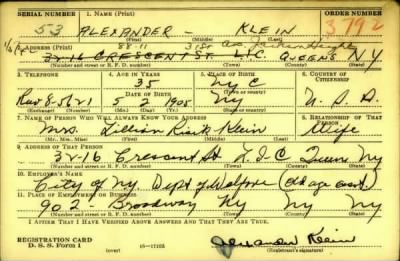 SERIAL NUMBER 1. NAME (Print) ORDER NUMBER
53 ALEXANDER - KLEIN 3792
(First) (Middle) (Last)
2. ADDRESS (Print) 88-11 31st Ave Jackson Heights
32-16 CRESCENT ST. L.I.C. QUEENS NY
(Number and street or R. F. D. number) (Town) (County) (State)
3. TELEPHONE 4. AGE IN YEARS 5. PLACE OF BIRTH 6. COUNTRY OF CITIZENSHIP
35 NYC
(Town or county)
DATE OF BIRTH
Rav 8-5621 5 2 1905 NY U.S.A.
(Exchange) (Number) (Mo.) (Day) (Yr.) (State or country)
7. NAME OF PERSON WHO WILL ALWAYS KNOW YOUR ADDRESS 8. RELATIONSHIP OF THAT PERSON
Mrs. Lillian Klein Wife
(Mr., Mrs., Miss) (First) (Middle) (Last)
9. ADDRESS OF THAT PERSON
32-16 Crescent St L.I.C Queens NY
(Number and street or R. F. D. number) (Town) (County) (State)
10. EMPLOYER'S NAME
City of NY. Dept of Welfare (Old age asst.)
11. PLACE OF EMPLOYMENT OR BUSINESS
902 Broadway NY NY NY
(Number and street or R. F. D. number) (Town) (County) (State)
I AFFIRM THAT I HAVE VERIFIED ABOVE ANSWERS AND THAT THEY ARE TRUE.
REGISTRATION CARD
D. S. S. Form 1 (over) 16-17105 Alexander Klein
(Registrant's signature)